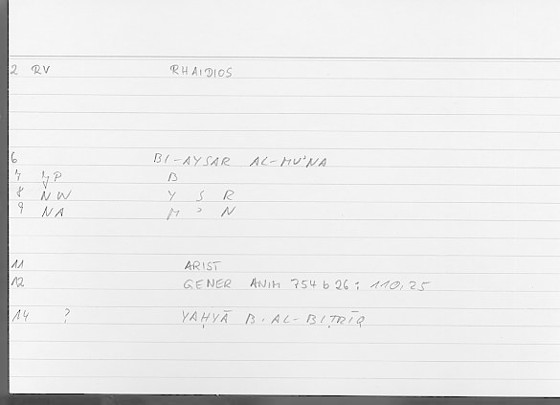 2 RV RHAIDIOS
6 BI-AYSAR AL-MUʾNA
7 P B
8 NW Y S R
9 NA M ʾ N
11 ARIST
12 GENER ANIM 754 b 26; 110,25
14 ? YAḤYĀ B. AL-BIṬRĪQ